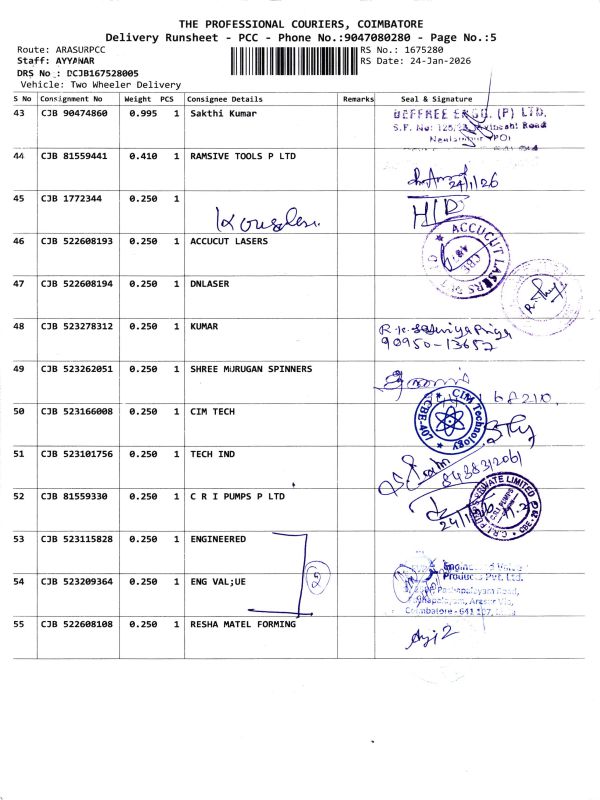 THE PROFESSIONAL COURIERS, COIMBATORE
Delivery Runsheet - PCC - Phone No.:9047080280 - Page No.:5
Route: ARASURPCC RS No.: 1675280
Staff: AYYANAR RS Date: 24-Jan-2026
DRS No : DCJB167528005
Vehicle: Two Wheeler Delivery
S No Consignment No Weight PCS Consignee Details Remarks Seal & Signature
43 CJB 90474860 0.995 1 Sakthi Kumar
(P) LTD.
S.F. No: Road
44 CJB 81559441 0.410 1 RAMSIVE TOOLS P LTD
24/1/26
45 CJB 1772344 0.250 1
46 CJB 522608193 0.250 1 ACCUCUT LASERS
ACCUCUT LASERS
CBE
47 CJB 522608194 0.250 1 DNLASER
48 CJB 523278312 0.250 1 KUMAR
90950-13657
49 CJB 523262051 0.250 1 SHREE MURUGAN SPINNERS
50 CJB 523166008 0.250 1 CIM TECH
CIM Technology
CBE-407
51 CJB 523101756 0.250 1 TECH IND
52 CJB 81559330 0.250 1 C R I PUMPS P LTD
C.R.I. PUMPS PRIVATE LIMITED
53 CJB 523115828 0.250 1 ENGINEERED
2
54 CJB 523209364 0.250 1 ENG VAL;UE
Products Pvt. Ltd.
Road,
Arasur
Coimbatore - 641
55 CJB 522608108 0.250 1 RESHA MATEL FORMING